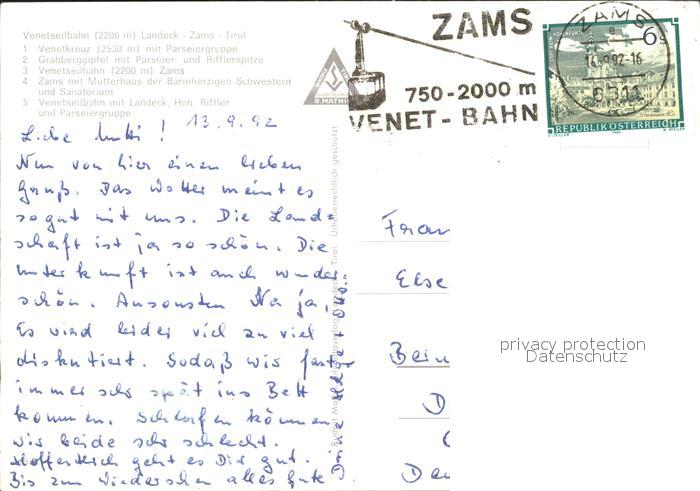 Venetseilbahn (2200 m) Landeck - Zams - Tirol
1 Venetkreuz (2530 m) mit Parseiergruppe
2 Grabberggipfel mit Parseier- und Rifflerspitze
3 Venetseilbahn (2200 m) Zams
4 Zams mit Mutterhaus der Barmherzigen Schwestern
und Sanatorium
5 Venetseilbahn mit Landeck, Hoh. Riffler
und Parseiergruppe
R. MATHIS
ZAMS
750-2000 m
VENET-BAHN
ZAMS
14.9.92-16
6511
6 S
REPUBLIK ÖSTERREICH
13.9.92
Liebe Mutti!
Nun von hier einen lieben
Gruß. Das Wetter meint es
so gut mit uns. Die Land=
schaft ist ja so schön. Die
Unterkunft ist auch wunder
schön. Ansonsten Na ja,
Es wird leider viel zu viel
diskutiert. Sodaß wir fast
immer sehr spät ins Bett
kommen. Schlafen können
wir beide sehr schlecht.
Hoffentlich geht es Dir gut.
Bis zum Wiedersehen alles Gute
Urheberrechtlich geschützt
Frau
Else
privacy protection
Datenschutz